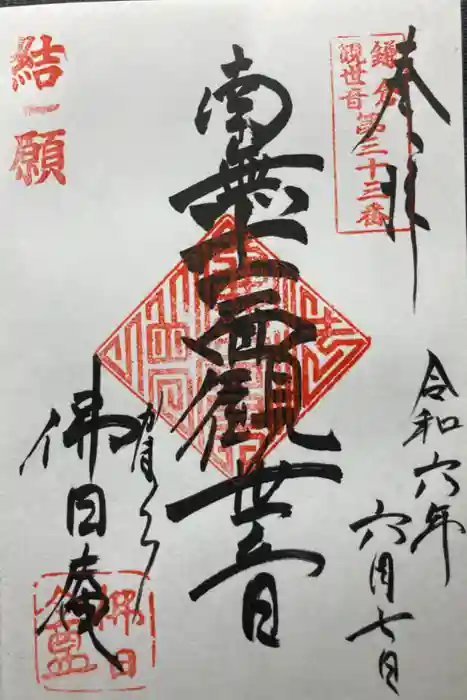 奉拝
鎌倉
観世音第三十三番
令和六年
六月七日
南無十一面観世音
結願
かまくら
佛日庵
佛日